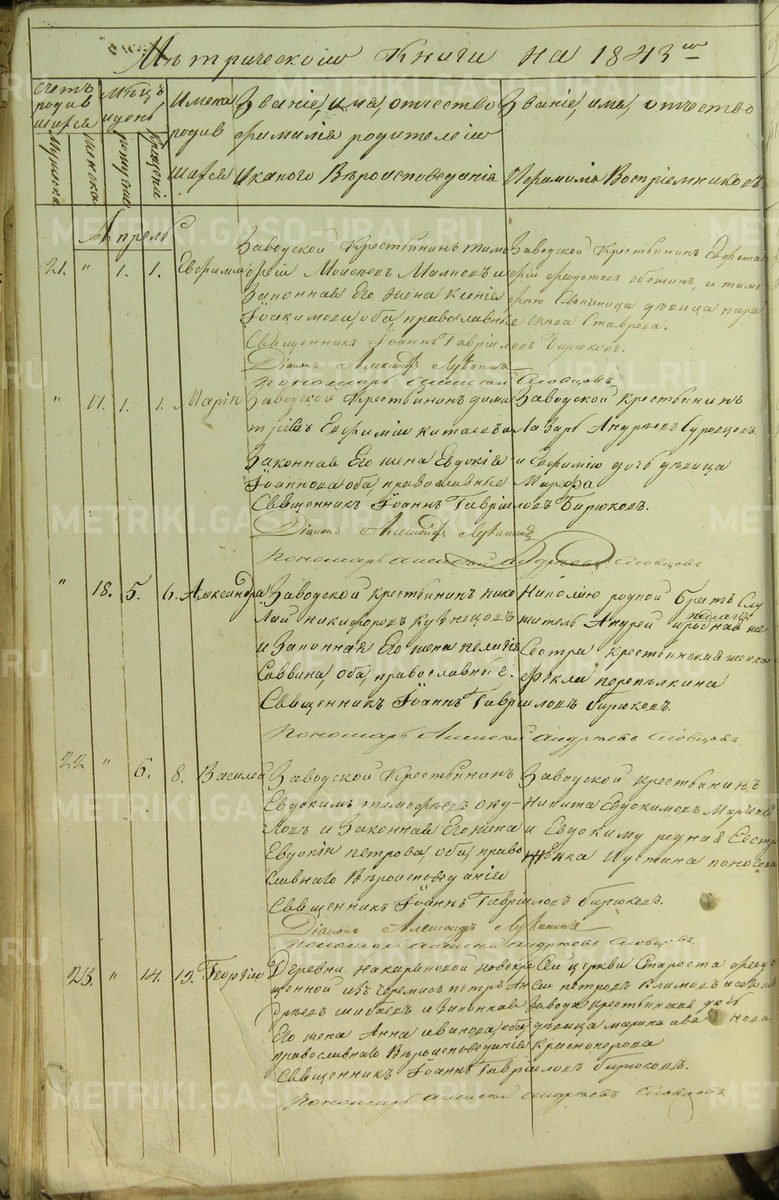 Метрической Книги на 1843й
Счетъ родив шагося
Мужеска
женска
Мѣсяцъ и день
рожденія
крещенія
Имена родив шагося
Званіе, имя, отчество фамилія родителей и какого Вѣроисповеданія
Званіе, имя, отчество и Фамилія Воспріемниковъ
Апрель
21. " 1. 1. Евфимій
Заводской Крестьянинъ тимо
фей Моисеевъ и
Законная Его жена Ксенія
Іоакимова, оба, православные
Заводской Крестьянинъ
девица пара
скева Ставрова.
Священникъ Іоаннъ Гавріиловъ Бирюковъ.
Діаконъ Александръ Лукапинъ
Пономарь Алексѣй Словцовъ
" 17. 1. 1. Марія
Заводской Крестьянинъ дими
трій Евфиміевъ китаевъ
Законная Его жена Евдокія
Іоаннова оба, православные
Заводской крестьянинъ
Лазарь Андреевъ Суровцевъ
и Евфимію дочь девица
Марфа
Священникъ Іоаннъ Гавріиловъ Бирюковъ.
Діаконъ Александръ Лукапинъ
Пономарь Алексей Андреевъ Словцовъ
" 18. 5. 6. Александра
Заводской крестьянинъ нико
лай никифоровъ кузнецовъ
и Законная Его жена пелагія
Саввина, оба, православные.
Николаю родной Братъ Слу
житель Андрей
пелагіи
родная же
Сестра крестьянская женка
Фекла перепелкина
Священникъ Іоаннъ Гавріиловъ бирюковъ.
Пономарь Алексей Андреевъ Словцовъ.
22 " 6. 8. Василей
Заводской Крестьянинъ
Евдокимъ тимофеевъ оку-
ловъ и Законная Его жена
Евдокія петрова, оба, право
славнаго Вѣроисповеданія
Заводской крестьянинъ
Никита Евдокимовъ
и Евдокиму родная Сестра
женка
Священникъ Іоаннъ Гавріиловъ бирюковъ.
Діаконъ Александръ Лукапинъ
Пономарь Алексей Андреевъ Словцовъ.
23. " 14. 15. Георгій
Деревни накаряковой новокре
щенной изъ Черемисъ петръ Ан
дреевъ шибаевъ и Законная
Его жена Анна иванова, оба
православнаго Вѣроисповеданія
Сей церкви Староста
петровъ Климовъ и
завода крестьянская дочь
девица марина ивановна
Красноперова
Священникъ Іоаннъ Гавріиловъ бирюковъ.
Пономарь Алексей Андреевъ Словцовъ
METRIKI.GASO-URAL.RU